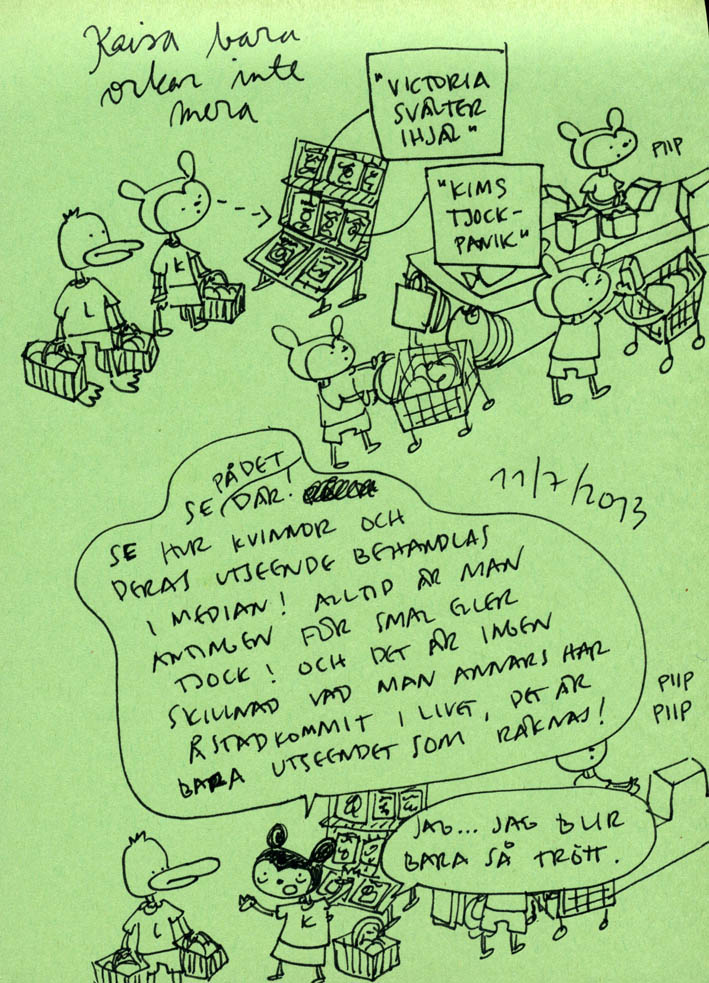 Kaisa bara
orkar inte
mera
"VICTORIA
SVÄLTER
IHJÄL"
"KIMS
TJOCK-
PANIK"
PIIP
K
L
11/7/2013
PÅ DET
SE DÄR!
SE HUR KVINNOR OCH
DERAS UTSEENDE BEHANDLAS
I MEDIAN! ALLTID ÄR MAN
ANTINGEN FÖR SMAL ELLER
TJOCK! OCH DET ÄR INGEN
SKILLNAD VAD MAN ANNARS HAR
ÅSTADKOMMIT I LIVET, DET ÄR
BARA UTSEENDET SOM RÄKNAS!
PIIP
PIIP
JAG... JAG BLIR
BARA SÅ TRÖTT.
L
K